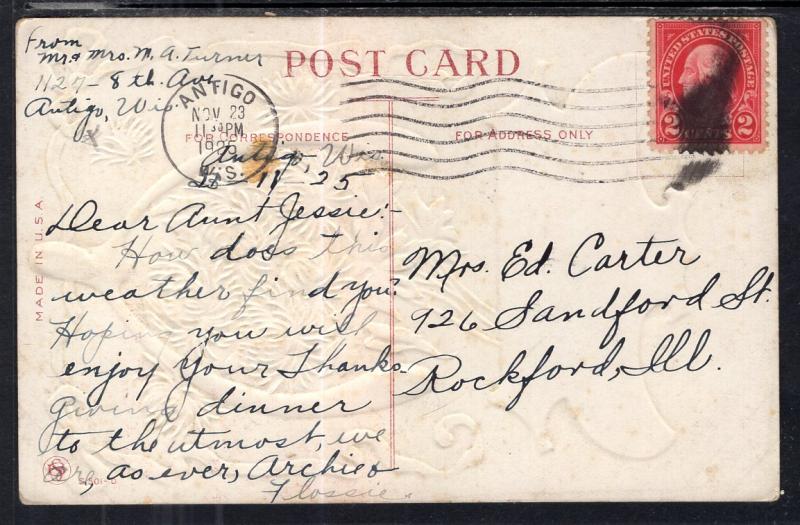 From
Mr & Mrs. M. A. Turner
1127 - 8th. Ave
Antigo, Wis.
POST CARD
ANTIGO
NOV 23
PM
1925
WIS.
UNITED STATES POSTAGE
2 CENTS 2
FOR CORRESPONDENCE
FOR ADDRESS ONLY
MADE IN U.S.A
Antigo, Wis.
11 - 25
Dear Aunt Jessie:-
How does this
weather find you?
Hoping you will
enjoy your Thanks-
giving dinner
to the utmost, we
are, as ever, Archie &
Flossie.
Mrs. Ed. Carter
926 Sandford St.
Rockford, Ill.